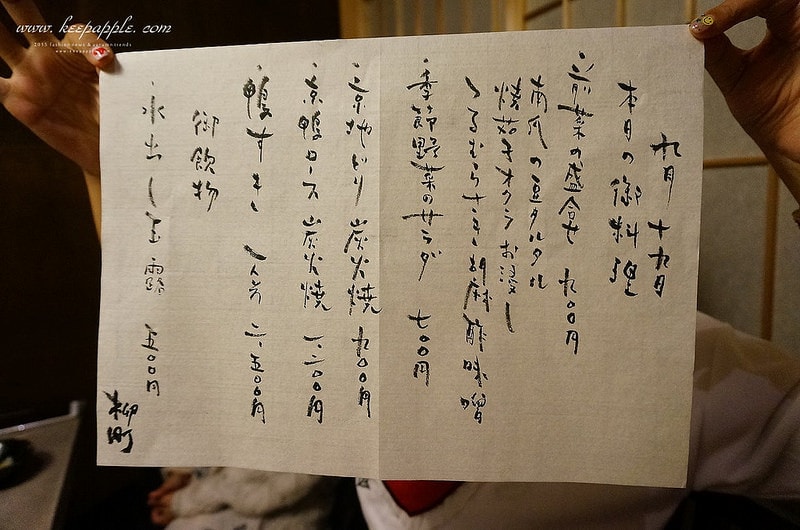 www.keepapple.com
九月十九日
本日の御料理
・前菜の盛合せ 九〇〇円
南瓜の豆タルタル
焼茄子オクラお浸し
つるむらさき胡麻酢味噌
・季節野菜のサラダ 七〇〇円
・京地どり 炭火焼 九〇〇円
・京鴨ロース 炭火焼 一、二〇〇円
・鴨すき 一人前 二、五〇〇円
御飲物
・水出し玉露 五〇〇円
柳町